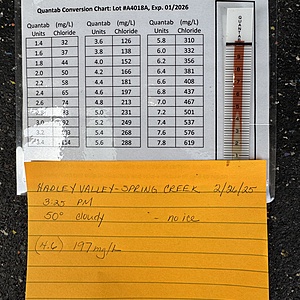 Quantab Conversion Chart: Lot #A4018A, Exp. 01/2026
Quantab Units (mg/L) Chloride Quantab Units (mg/L) Chloride Quantab Units (mg/L) Chloride
1.4 32 3.6 126 5.8 310
1.6 37 3.8 138 6.0 332
1.8 44 4.0 152 6.2 356
2.0 50 4.2 166 6.4 381
2.2 58 4.4 181 6.6 408
2.4 65 4.6 197 6.8 437
2.6 74 4.8 213 7.0 467
83 5.0 231 7.2 501
3.0 92 5.2 249 7.4 537
3.2 5.4 268 7.6 576
114 5.6 288 7.8 619
QUANTAB
HADLEY VALLEY-SPRING CREEK 2/26/25
3:25 PM
50° cloudy - no ice
(4.6) 197 mg/L